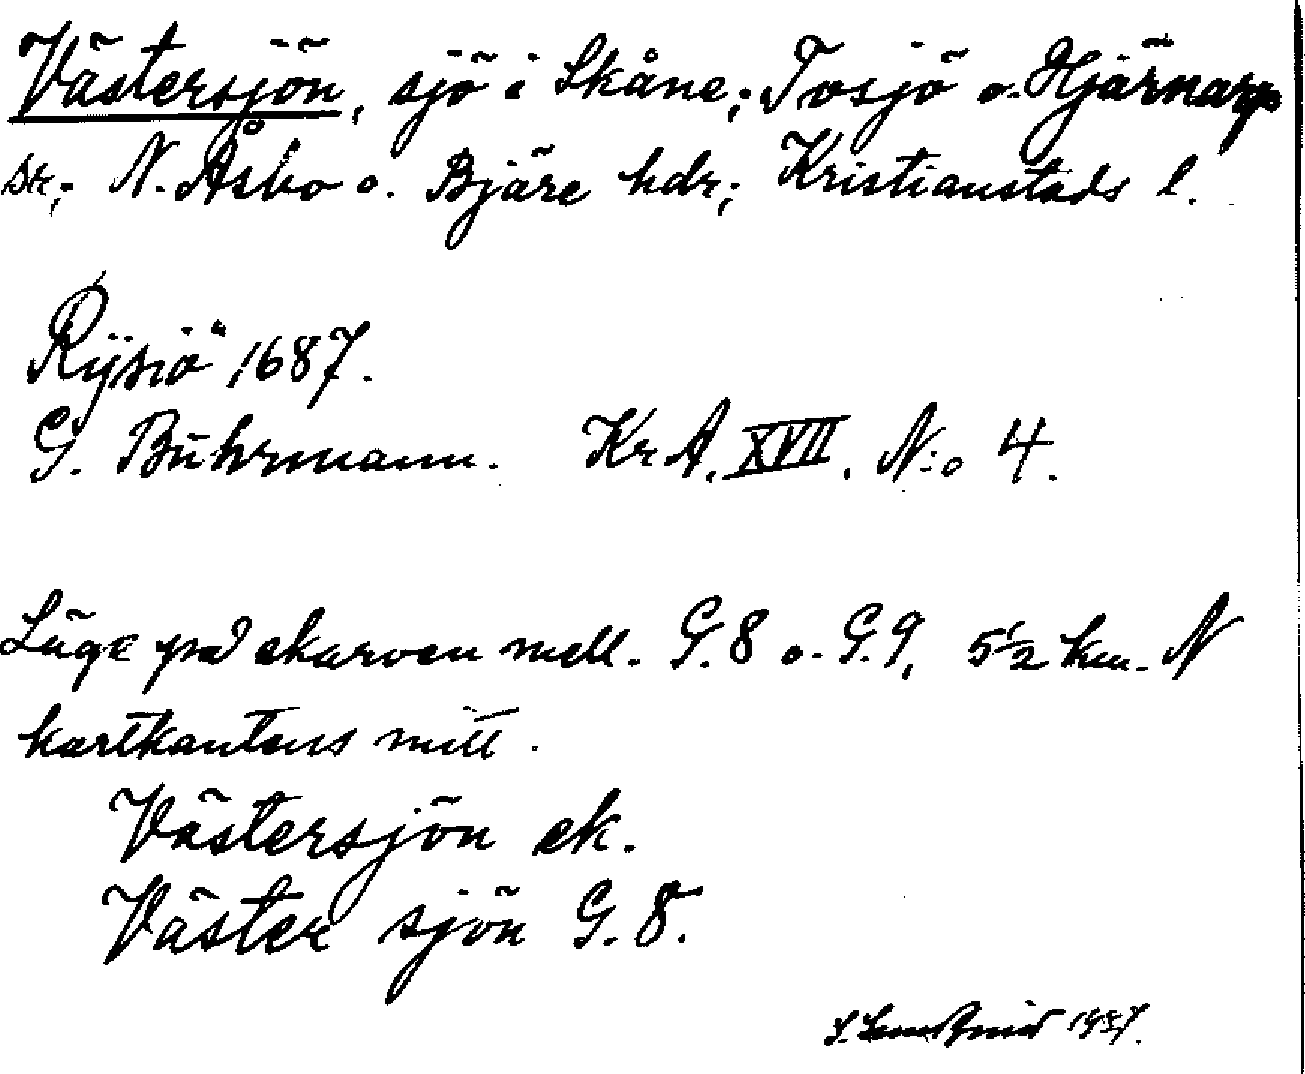 Västersjön, sjö i Skåne; Tosjö o. Hjärnarp
sk; N. Åsbo o. Bjäre hdr; Kristianstads l.
Rÿsiö 1687.
G. Buhrmann. Kr A. XVII. N:o 4.
Läge på ekarven mell. G. 8 o. G. 9, 5 1/2 km. N
kartkantens mitt.
Västersjön ek.
Väster sjön G. 8.
1937.